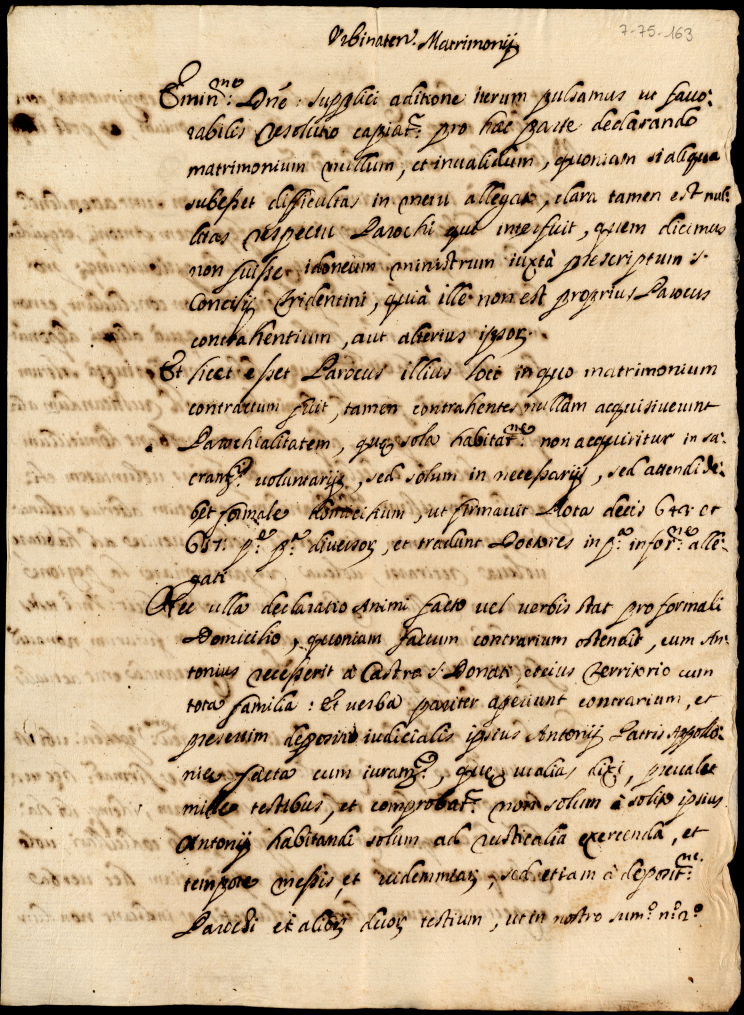 7-75-163
Urbinaten. Matrimonij
Emin.me Dne: supplici aditione iterum pulsamus ut favo:
rabilis resolutio capiat.r pro hac parte declarando
matrimonium nullum, et invalidum, quoniam si aliqua
subesset difficultas in metu allegato, clara tamen est nul:
litas respectu Parochi qui interfuit, quem dicimus
non fuisse idoneum ministrum iuxtà prescriptum s.
Concilij Tridentini, quià ille non est proprius Parocus
contrahentium, aut alterius ipsor.
Et licet esset Parocus illius loci in quo matrimonium
contractum fuit, tamen contrahentes nullam acquisiverunt
Parochialitatem, quę sola habitat.ne non acquiritur in sa:
cram.s voluntarijs, sed solum in necessarijs, sed attendi de:
bet formale Domicilium, ut firmavit Rota decis 673 et
p.e p.a diversor, et tradunt Doctores in p.a infor.ne alle:
gati
Nec ulla declaratio Animi facto vel verbis stat pro formali
Domicilio, quoniam factum contrarium ostendit, cum An:
tonius recesserit à Castro s. Donati, et eius Territorio cum
tota familia: Et verba pariter aperiunt contrarium, et
presertim depositio iudicialis ipsius Antonij Patris Appollo:
nię facta cum iuram.o, quę, ut alias dixi, prevalet
mille testibus, et comprobat.r non solum à solito ipsius
Antonij habitandi solum ad rusticalia exercenda, et
tempore messis, et videmmiar, sed etiam à deposit.ne
Parochi et alior duor testium, ut in nostro sum.o n.o 2.o